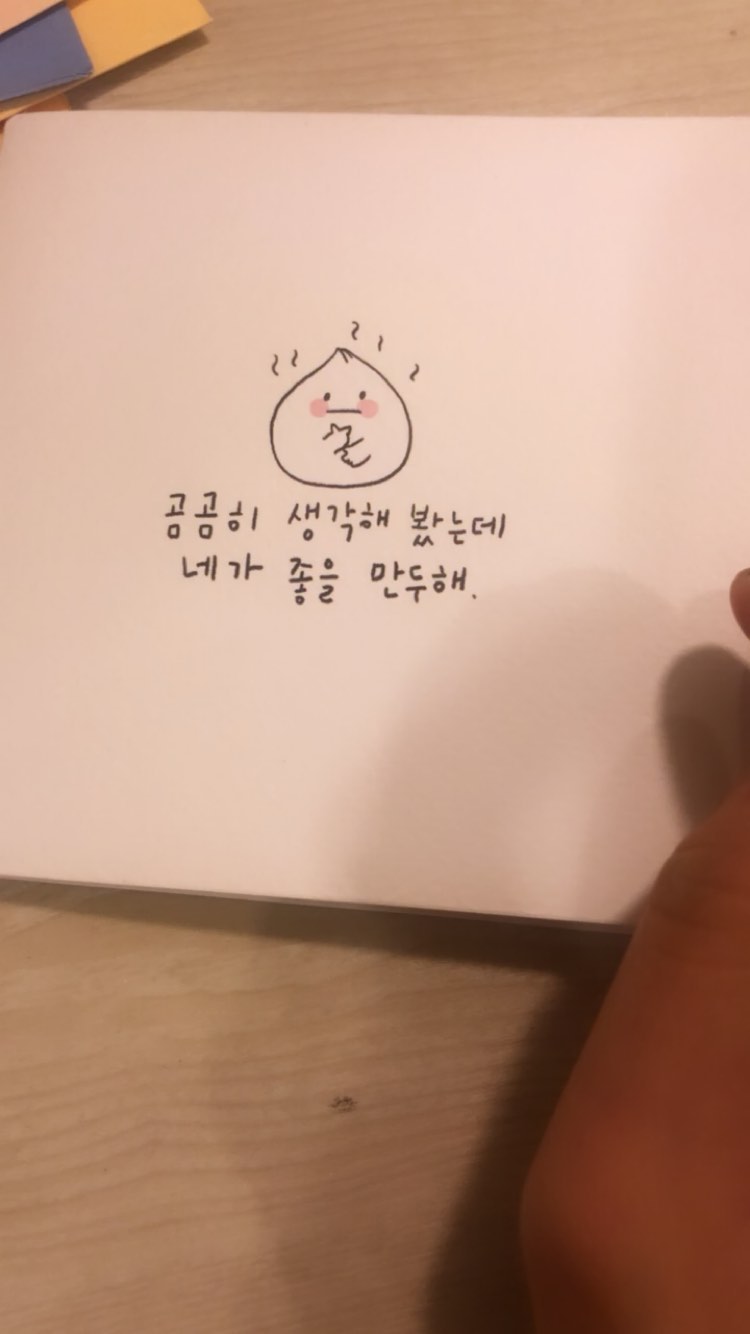 곰곰히 생각해 봤는데
네가 좋을 만두해.